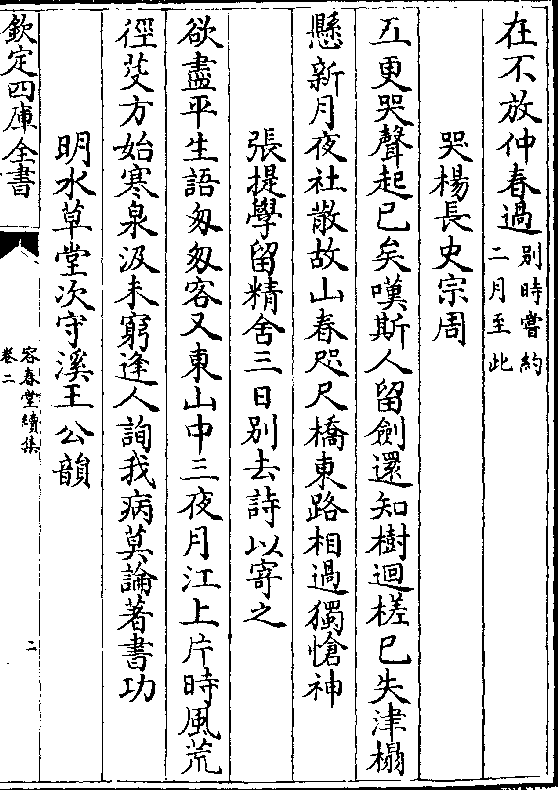 在不放仲春過別時嘗約
二月至此
哭楊長史宗周
五更哭聲起已矣嘆斯人留劍還知樹迴槎已失津榻
懸新月夜社散故山春咫尺橋東路相過獨愴神
張提學留精舍三日别去詩以寄之
欲盡平生語匆匆客又東山中三夜月江上片時風荒
徑芟方始寒泉汲未窮逢人詢我病莫論著書功
明水草堂次守溪王公韻
欽定四庫全書
容春堂續集
卷二
二